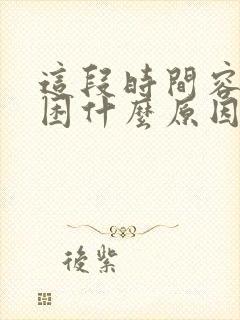 這段時間容
困什麼原因
後紫